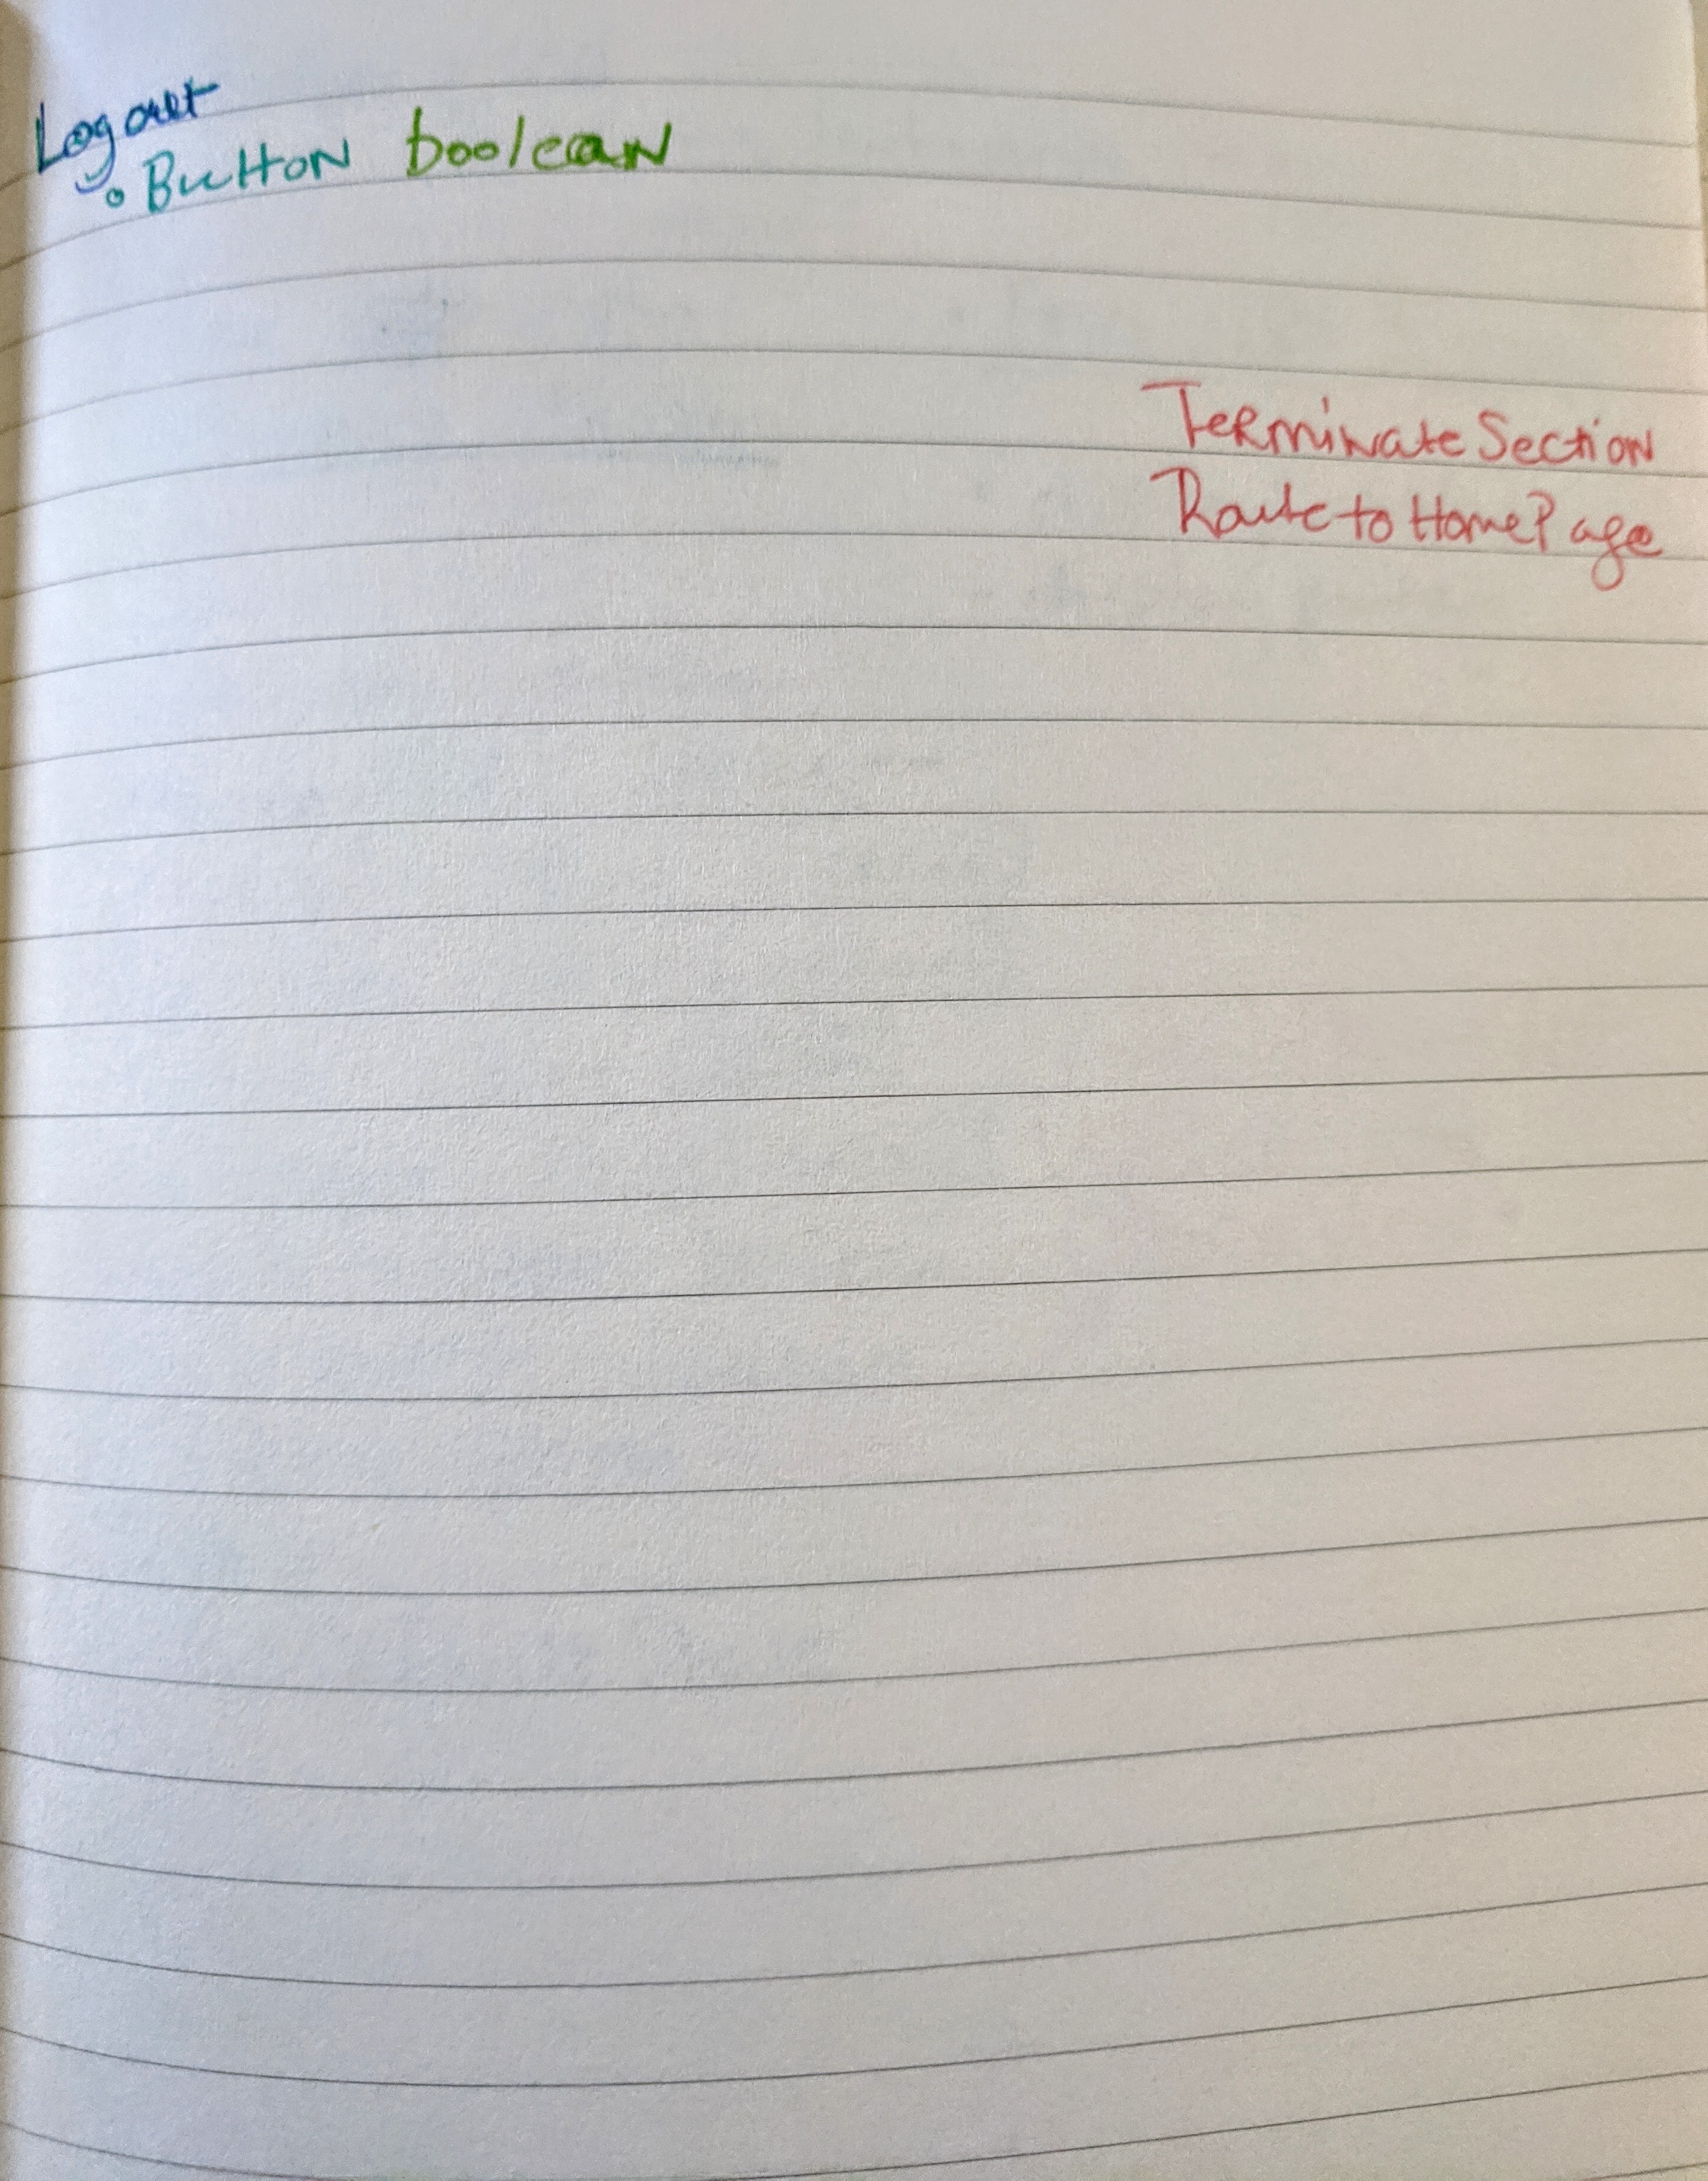 Logout
∘ Button boolean
Terminate Section
Route to Home Page